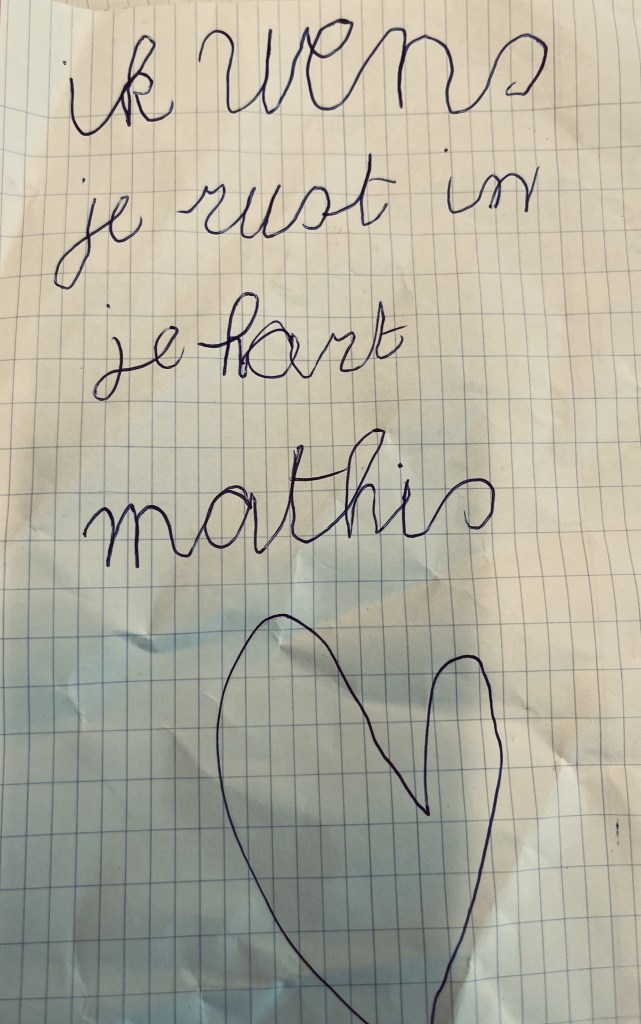 ik wens
je rust in
je hart
mathis